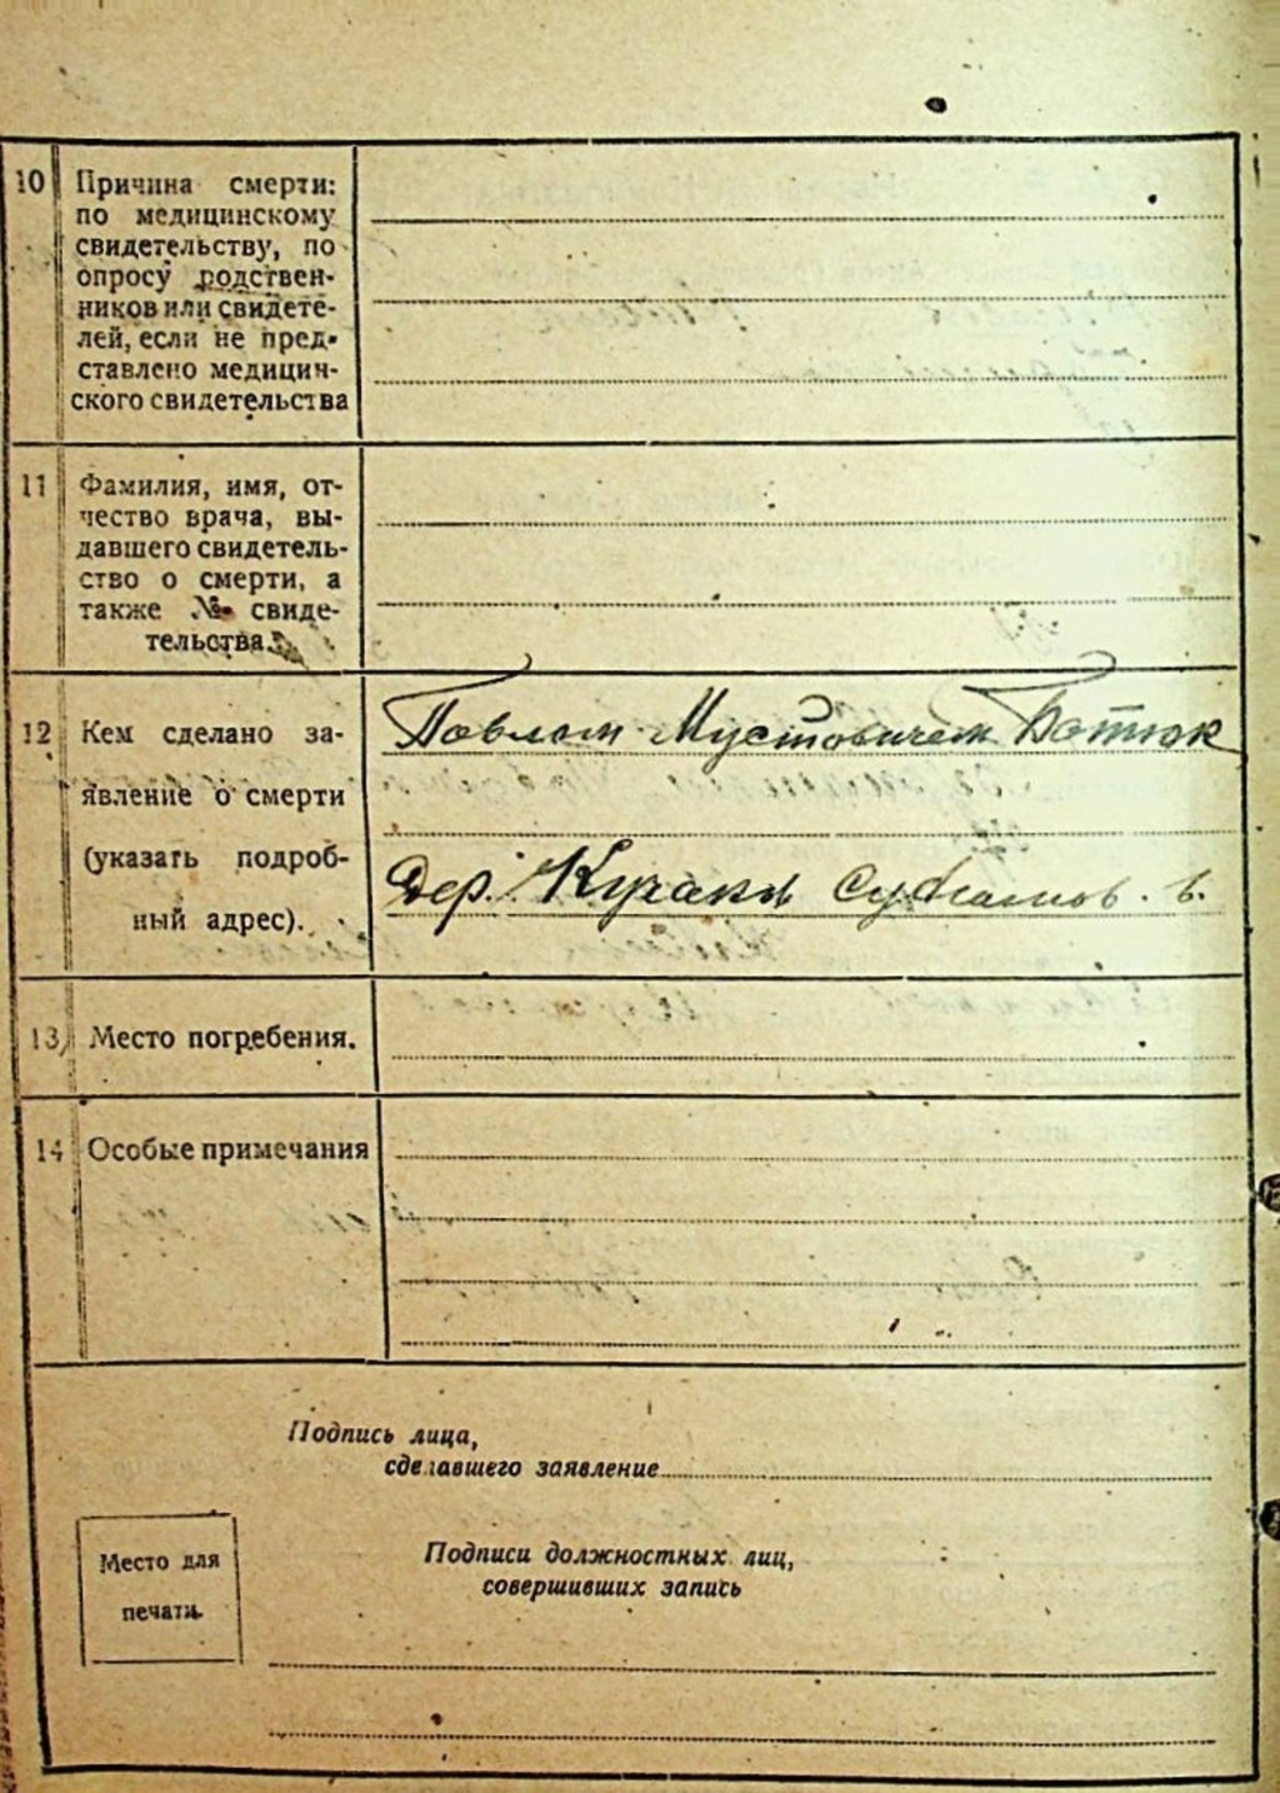 10 Причина смерти:
по медицинскому
свидетельству, по
опросу родствен-
ников или свидете-
лей, если не пред-
ставлено медицин-
ского свидетельства
11 Фамилия, имя, от-
чество врача, вы-
давшего свидетель-
ство о смерти, а
также № свиде-
тельства.
12 Кем сделано за-
явление о смерти
(указать подроб-
ный адрес).
Павлом Мустовичем Ботюк
Дер. Кугаки в.
13 Место погребения.
14 Особые примечания
Подпись лица,
сделавшего заявление
Место для
печати.
Подписи должностных лиц,
совершивших запись